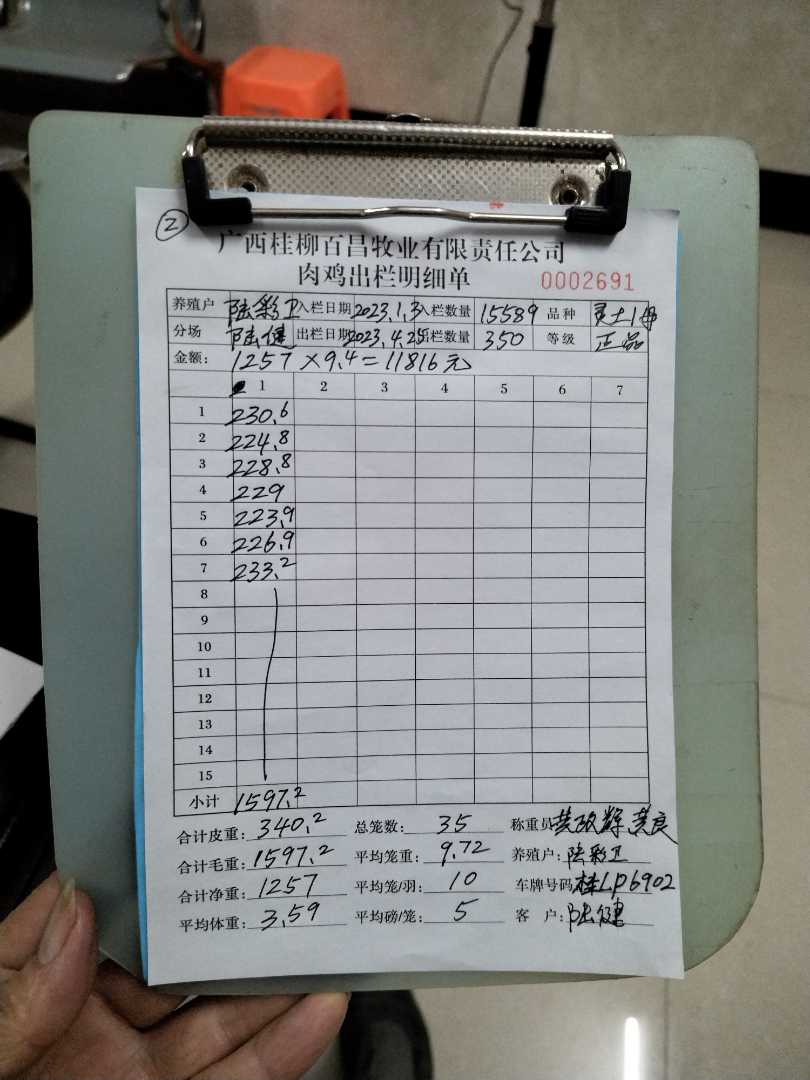 ②
广西桂柳百昌牧业有限责任公司
肉鸡出栏明细单 0002691
养殖户 陆彩卫 入栏日期 2023.1.3 入栏数量 15589 品种
分场 陆健 出栏日期 2023.4.25 出栏数量 350 等级 正品
金额: 1257×9.4=11816元
1 2 3 4 5 6 7
1 230.6
2 224.8
3 228.8
4 229
5 223.9
6 226.9
7 233.2
8
9
10
11
12
13
14
15
小计 1597.2
合计皮重: 340.2 总笼数: 35 称重员
合计毛重: 1597.2 平均笼重: 9.72 养殖户: 陆彩卫
合计净重: 1257 平均笼/羽: 10 车牌号码 桂LP6902
平均体重: 3.59 平均磅/笼: 5 客 户: 陆健